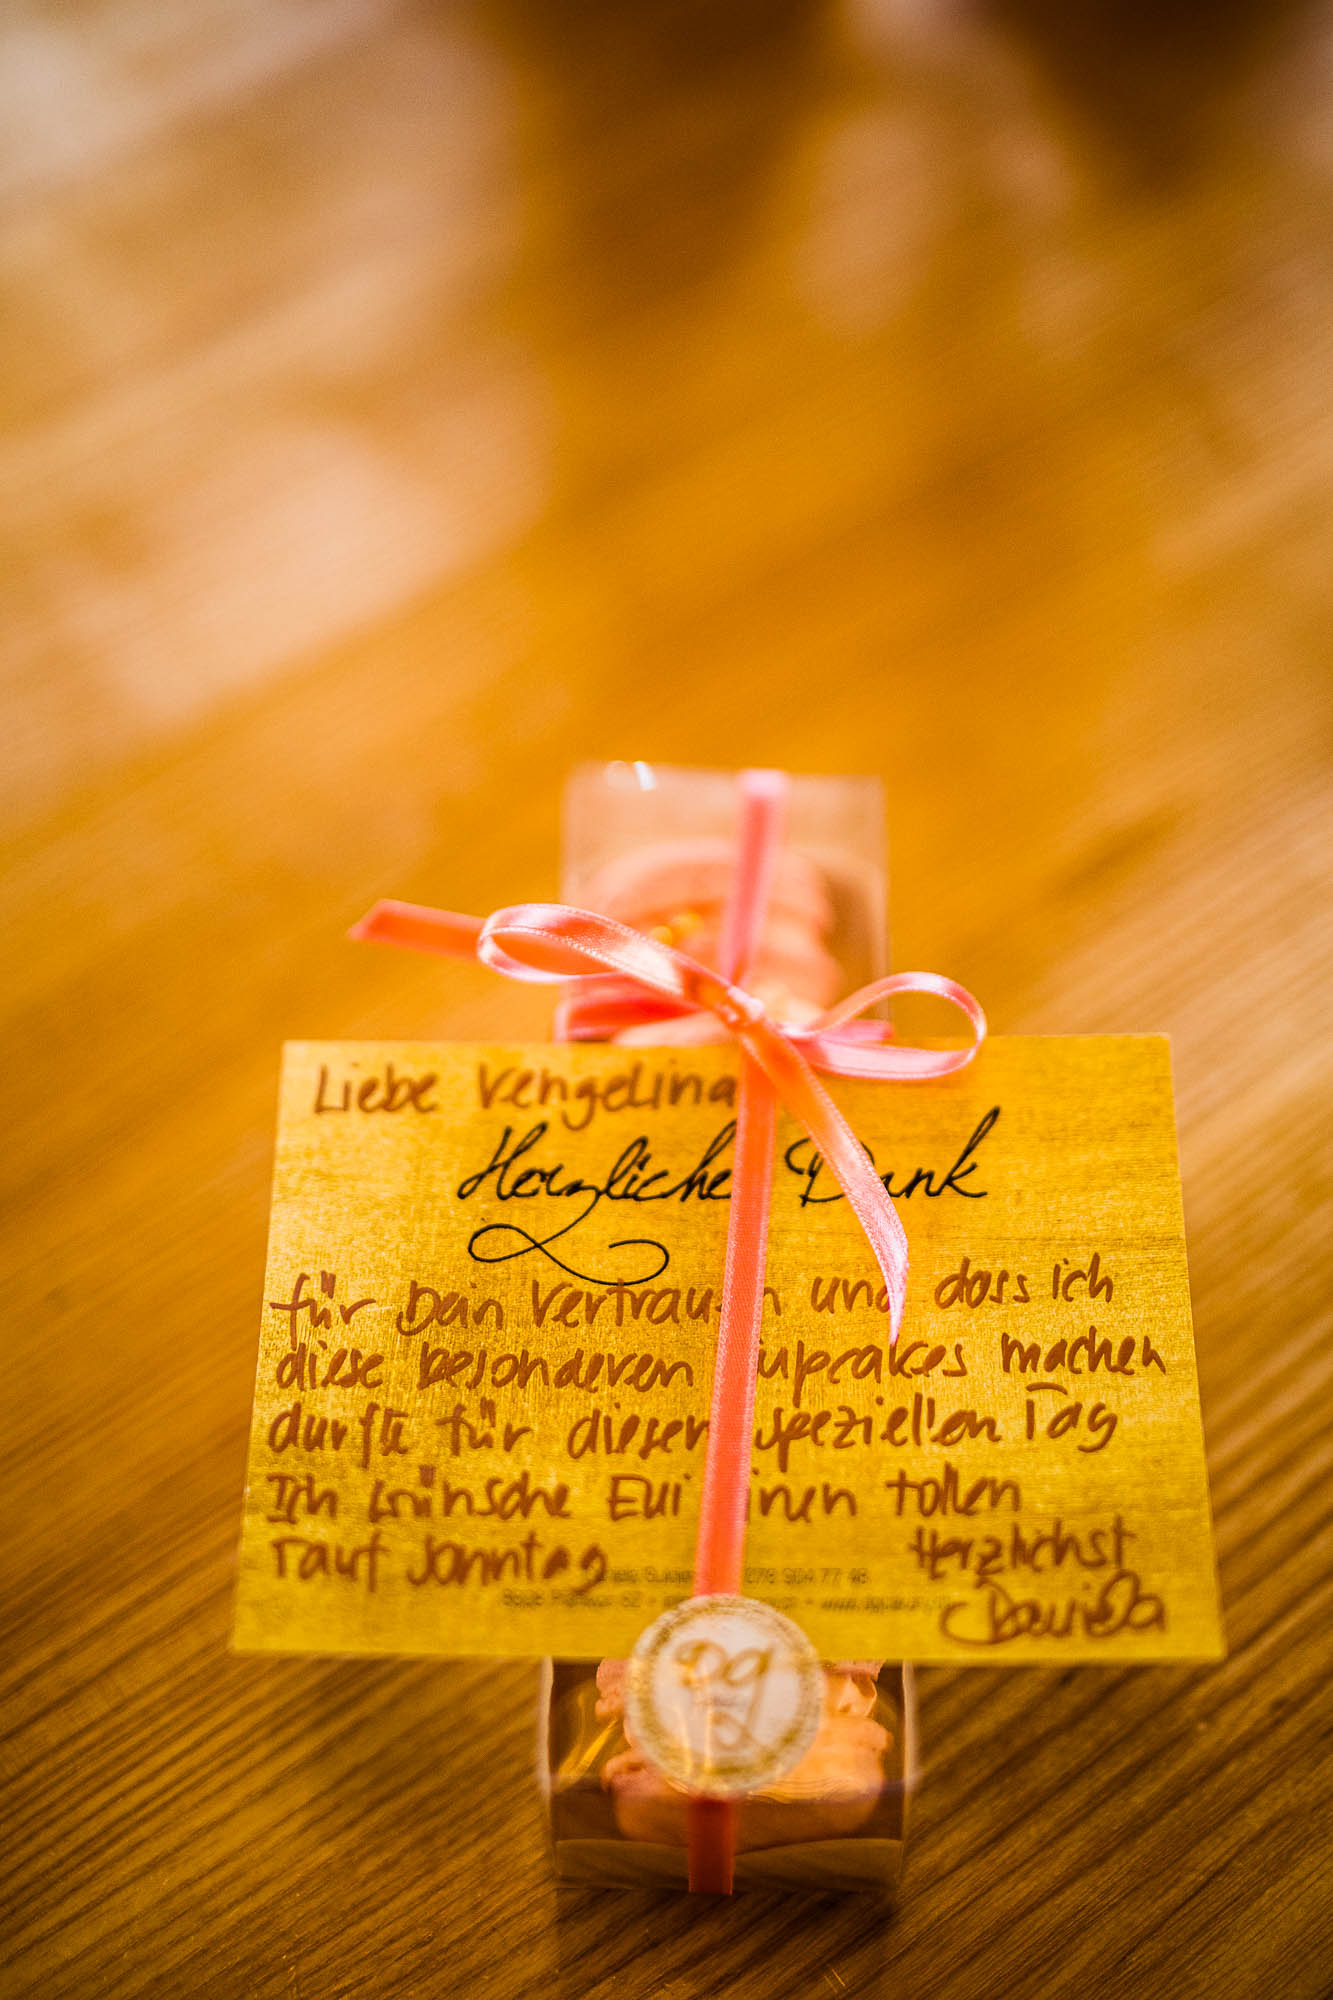 Liebe Vengelina
Herzlichen Dank
für Dein Vertrauen und dass ich
diese besonderen Cupcakes machen
durfte für diesen speziellen Tag
Ich wünsche Eui einen tollen
Tauf Sonntag
Herzlichst
Daniela
078 904 77 48
pg